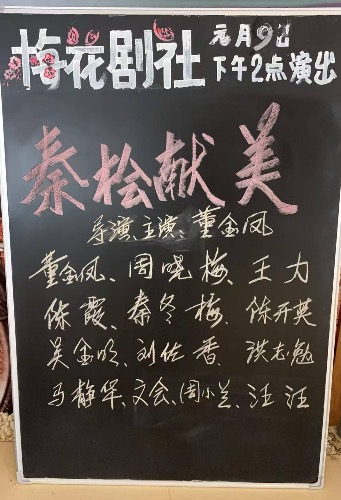 梅花剧社 元月9日
下午2点演出
秦桧献美
导演、主演、董金凤
董金凤、周晓梅、王力
陈霞、秦冬梅、陈开英
吴金明、刘佐香、洪志勉
马静华、文会、周小兰、汪汪